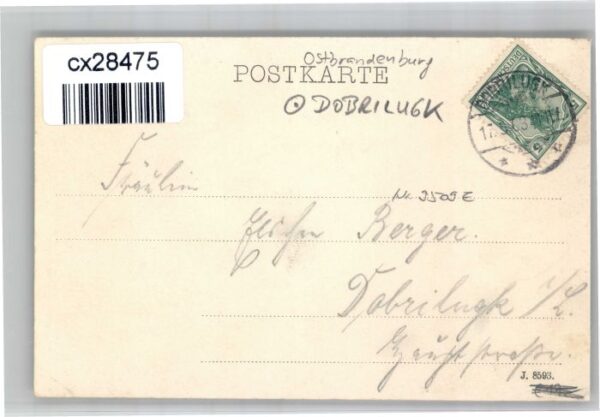 cx28475
Ostbrandenburg
POSTKARTE
DOBRILUGK
DOBRILUGK
17.
Fräulein
Nr. 3509 E
Elschen Berger.
Dobrilugk N/L.
Hauptstraße.
J. 8593.